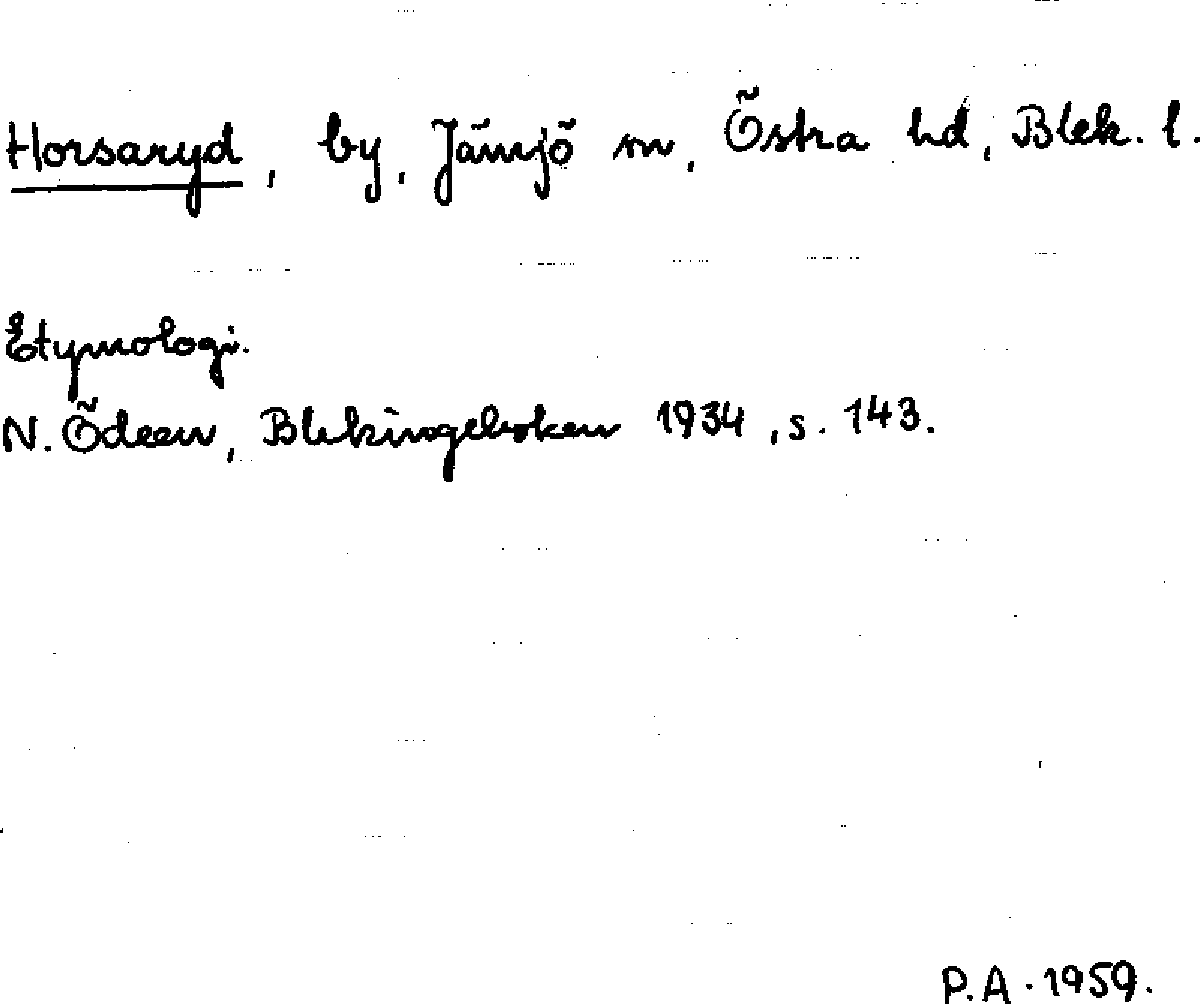 Horsaryd, by, Jämjö sn, Östra hd, Blek. l.
Etymologi.
N. Ödeen, Blekingeboken 1934, s. 143.
P.A. 1959.